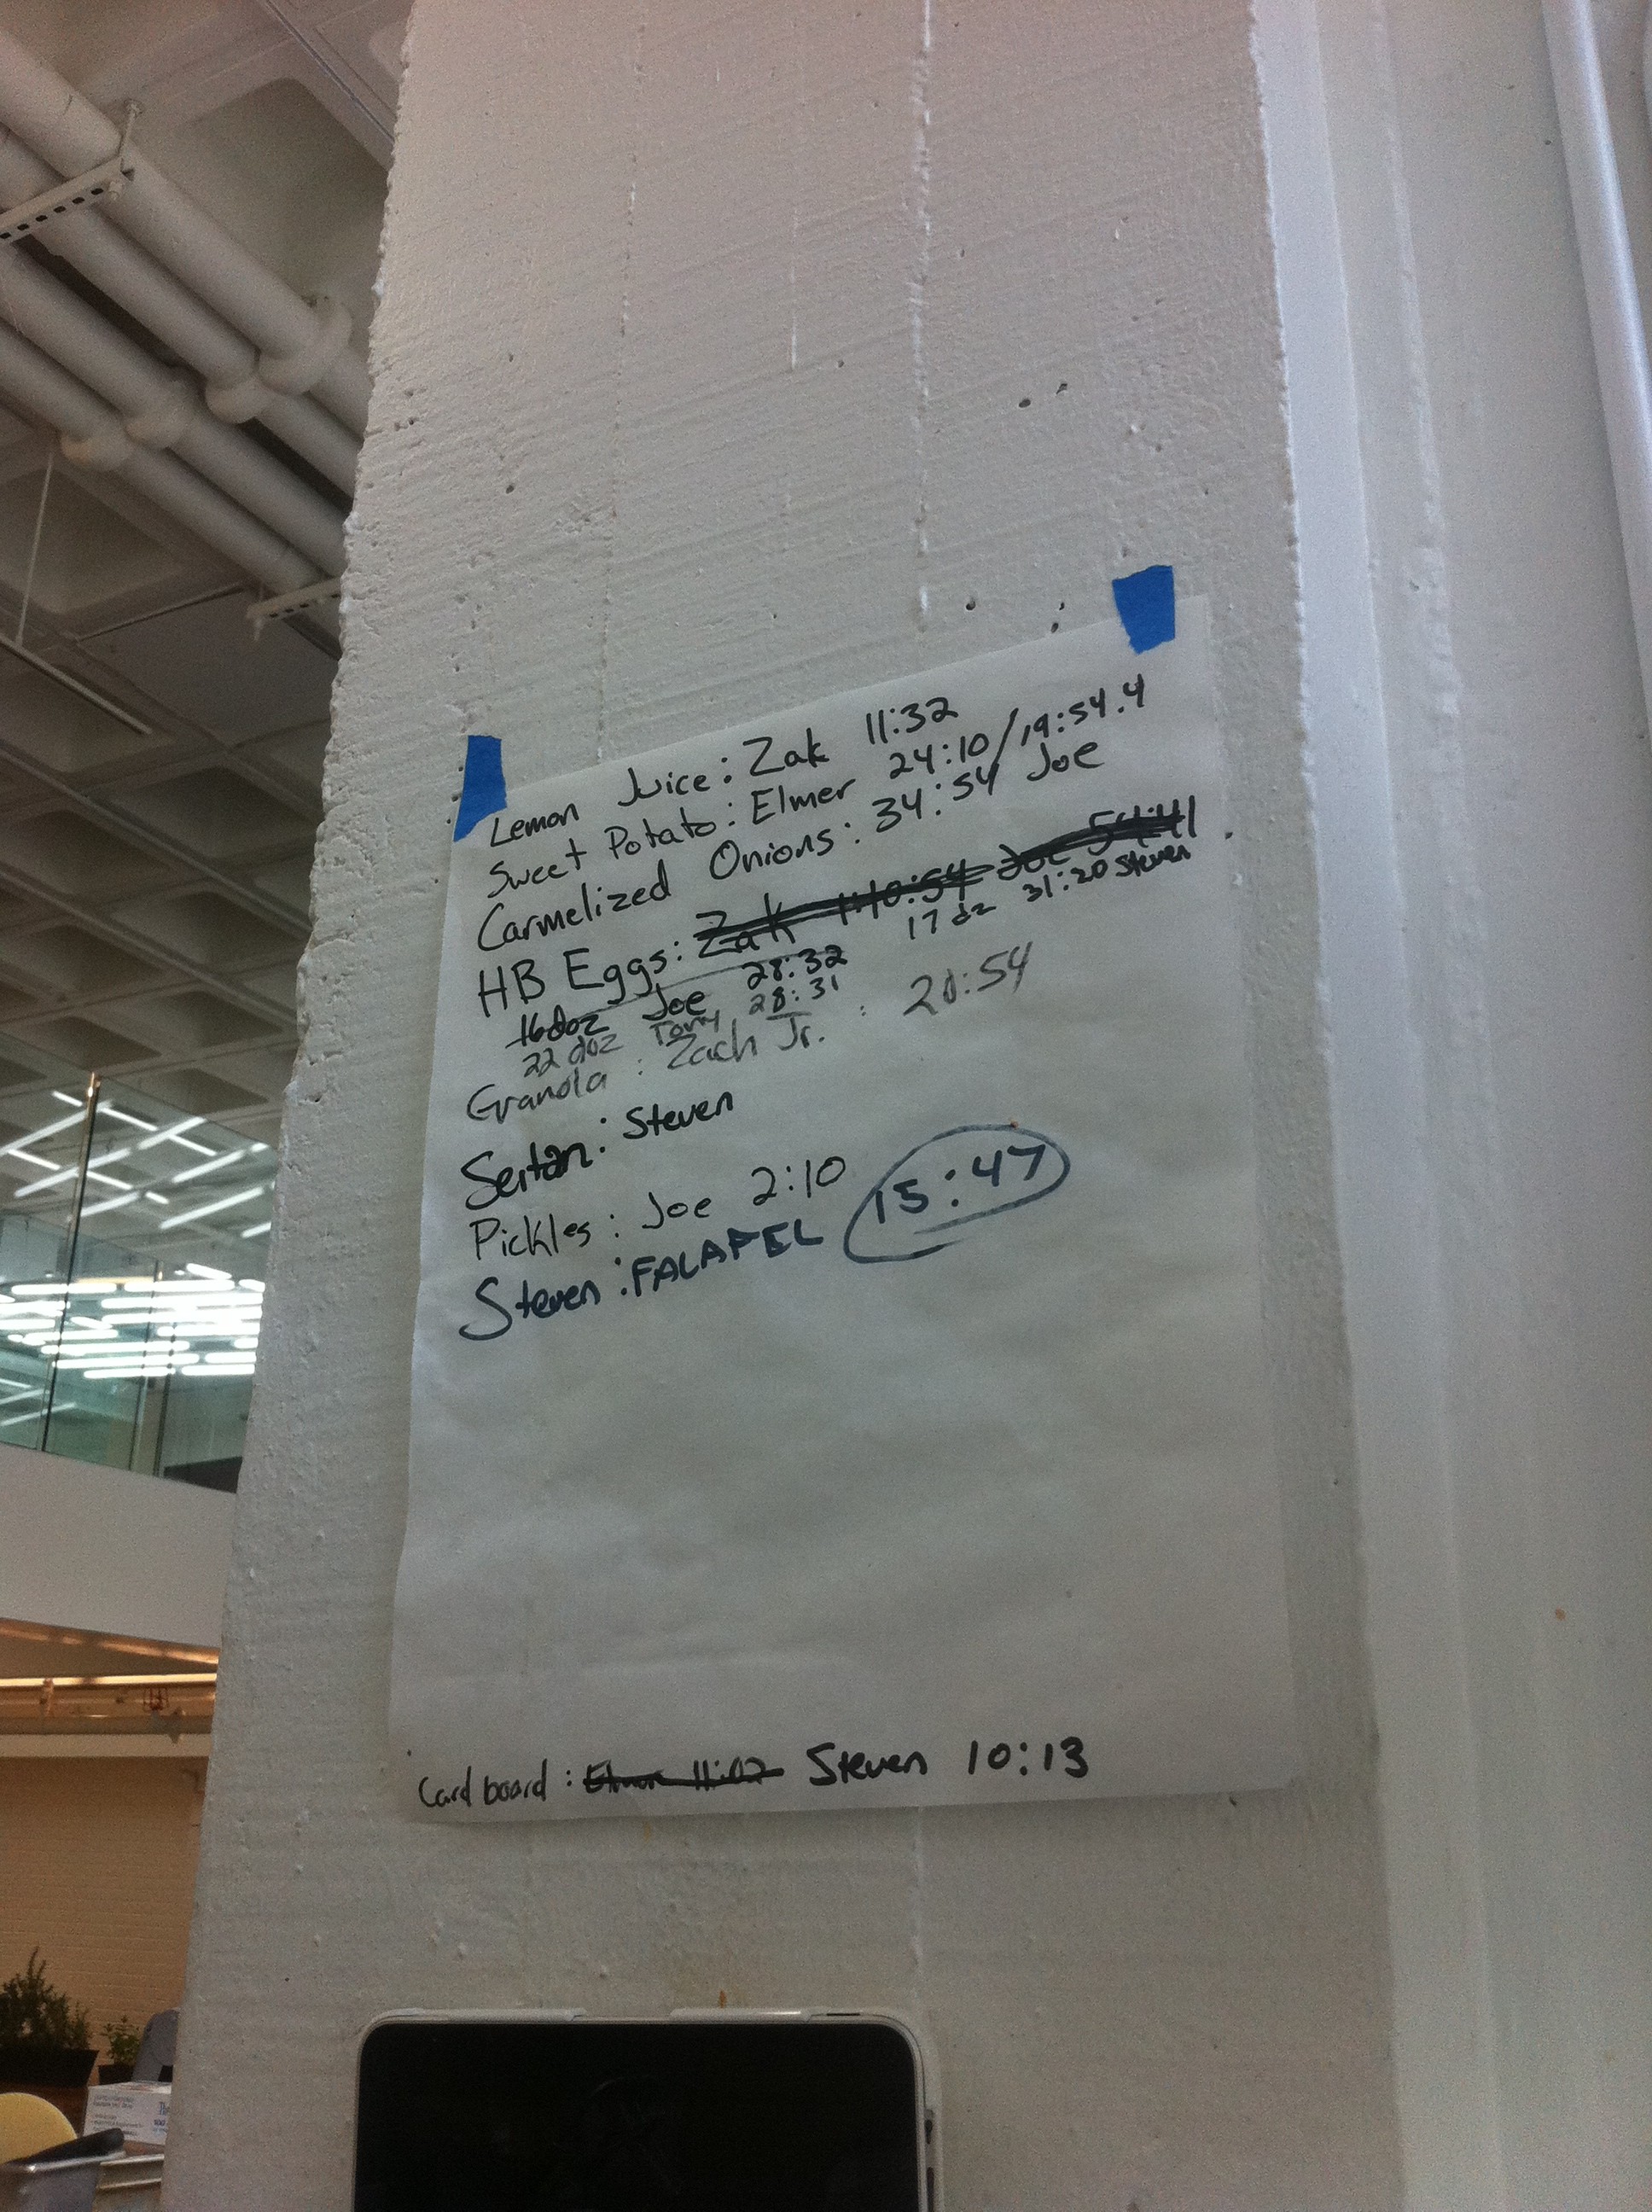 Lemon Juice: Zak 11:32
Sweet Potato: Elmer 24:10/19:54.4
Carmelized Onions: 34:54 Joe
HB Eggs: Zak 1:10:54 Joe 54:41
17 dz 31:20 Steven
16doz Joe 28:32
22 doz Tony 28:31
Granola : Zach Jr. : 20:54
Seitan: Steven
Pickles: Joe 2:10
Steven: FALAFEL 15:47
Card board: Elmer 11:07 Steven 10:13